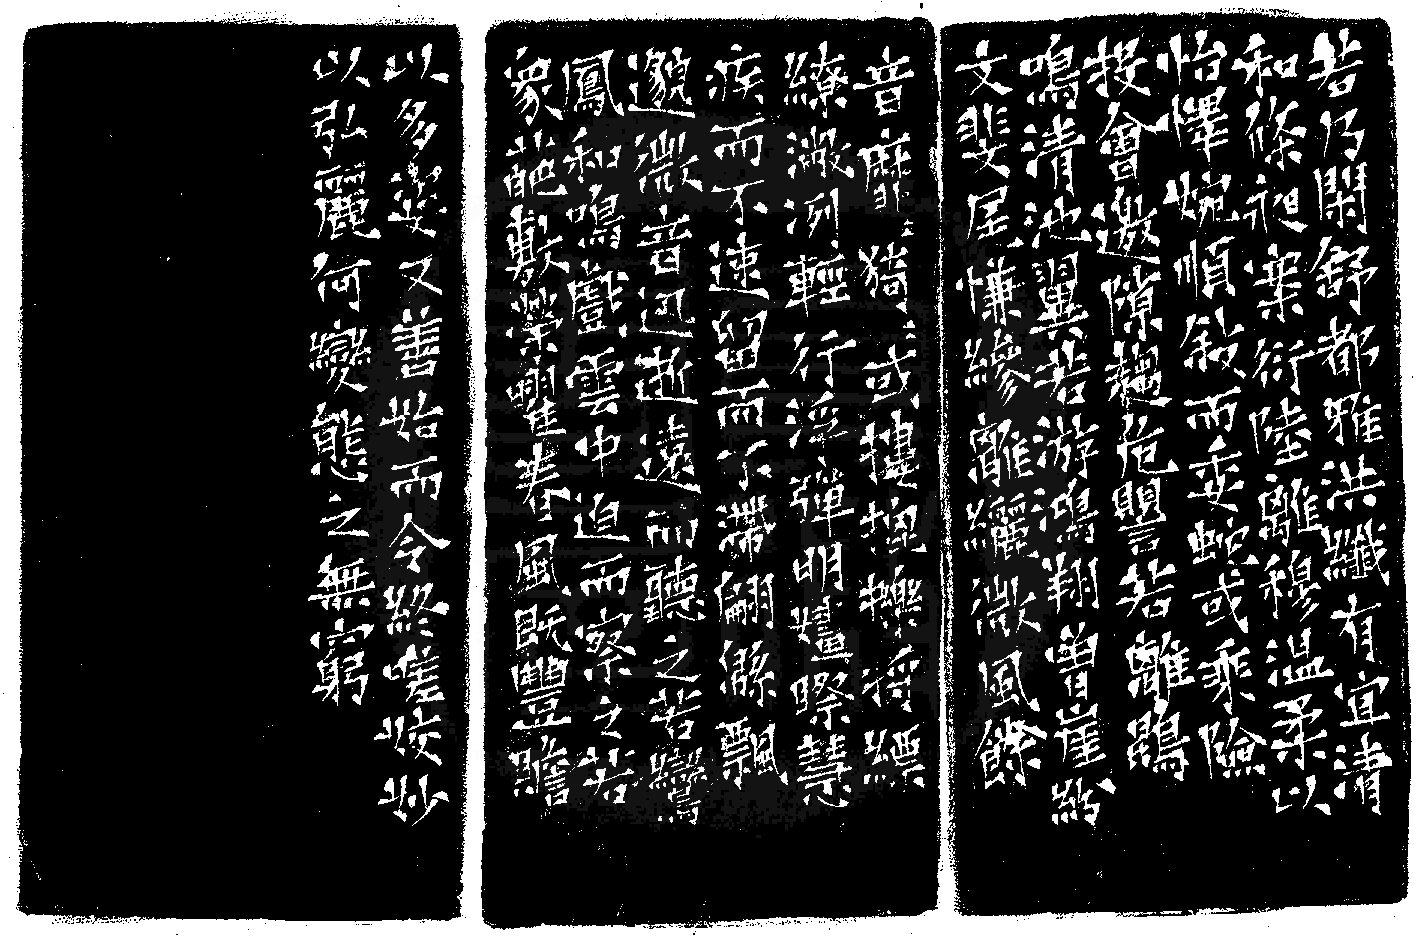 若乃閑舒都雅洪纖有宜清
和條昶案衍陸離穆溫柔以
怡懌婉順敘而委蛇或乘險
投會邀隙趨危譻若離鵾
鳴清池翼若游鴻翔曾崖紛
文斐尾慊縿離纚微風餘
音靡〻猗〻或摟批擽捋縹
繚潎冽輕行浮彈明嫿𥊀慧
疾而不速留而不滯翩綿飄
邈微音迅逝遠而聽之若鸞
鳳和鳴戲雲中迫而察之若
衆葩敷榮曜春風既豐贍
以多姿又善始而令終嗟姣妙
以弘麗何變態之無窮